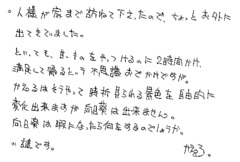 。人様が家まで訪ねて下さったので、ちょっとお外に
出てきていました。
といっても、きものをやっつけるのに2時間かけ、
満足して帰るという不思議なおでかけですが。
かえるはそうやって時折見られる景色を自由的に
変化出来ますが向日葵は出来ません。
向日葵は暇になったら何をするのでしょうか。
※謎です。
かえる。